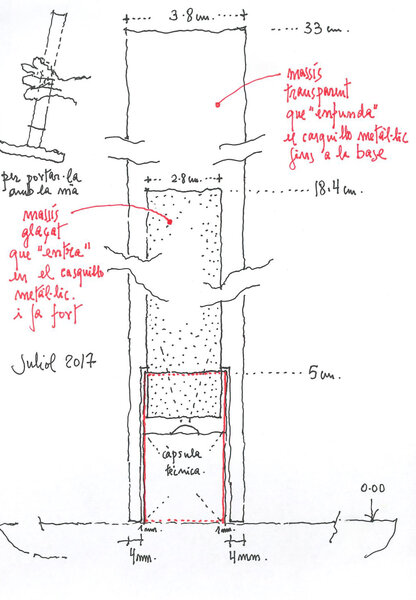 3.8 cm.
33 cm.
massís
transparent
que "enfunda"
el casquillo metàl·lic
fins a la base
per portar·la
amb la mà
2.8 cm.
18.4 cm.
massís
glaçat
que "entra"
en el casquillo
metàl·lic.
i fa fort
Juliol 2017
5 cm.
càpsula
tècnica.
0.00
1mm.
1mm.
4mm.
4mm.